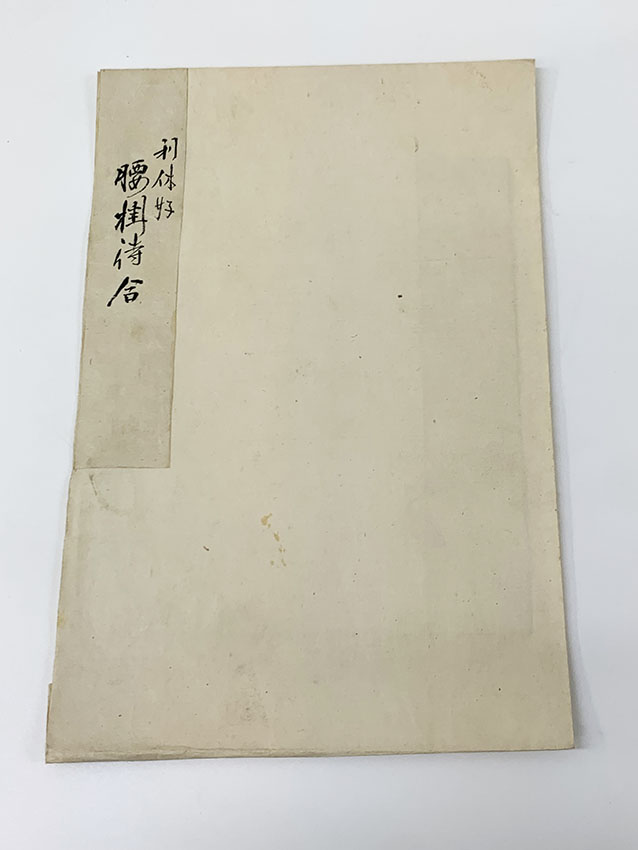 利休好
腰掛待合